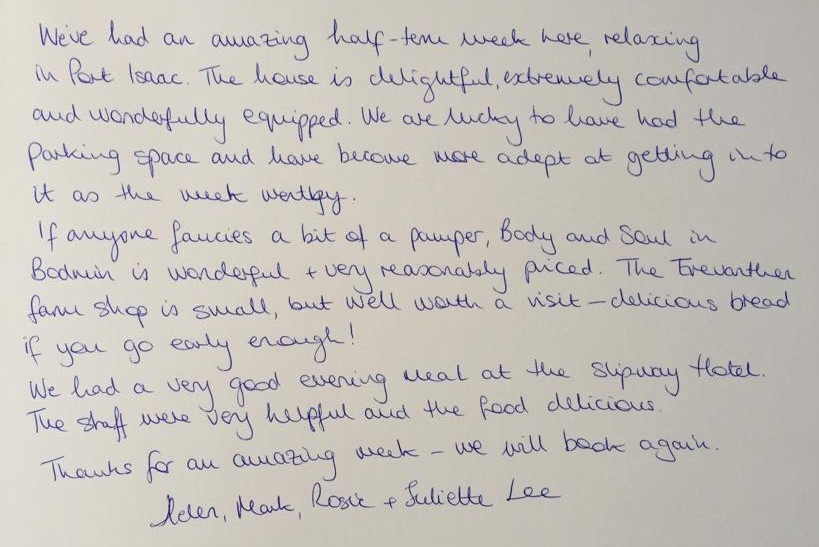 We've had an amazing half-term week here, relaxing
in Port Isaac. The house is delightful, extremely comfortable
and wonderfully equipped. We are lucky to have had the
parking space and have become more adept at getting into
it as the week went by.
If anyone fancies a bit of a pamper, Body and Soul in
Bodmin is wonderful + very reasonably priced. The Trevanther
farm shop is small, but well worth a visit - delicious bread
if you go early enough!
We had a very good evening meal at the Slipway Hotel.
The staff were very helpful and the food delicious.
Thanks for an amazing week - we will book again.
Mark, Rosie + Juliette Lee